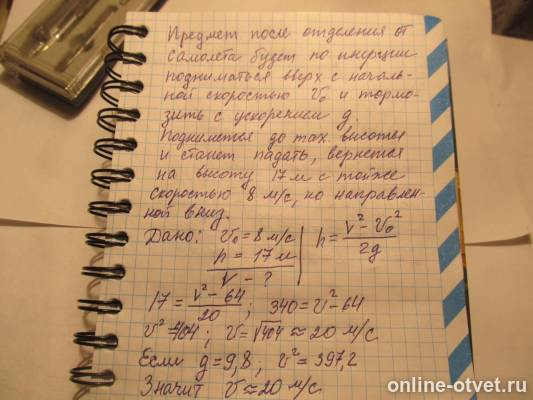 Предмет после отделения от
самолета будет по инерции
подниматься вверх с началь-
ной скоростью v₀ и тормо-
зить с ускорением g.
Поднимется до max высоты
и станет падать, вернется
на высоту 17 м с той же
скоростью 8 м/с, но направлен-
ной вниз.
Дано: v₀ = 8 м/с | h = (v² - v₀²)/2g
h = 17 м
v - ?
17 = (v² - 64)/20 ; 340 = v² - 64
v² = 404 ; v = √404 ≈ 20 м/с
Если g = 9,8 ; v² = 397,2
Значит v ≈ 20 м/с
online-otvet.ru